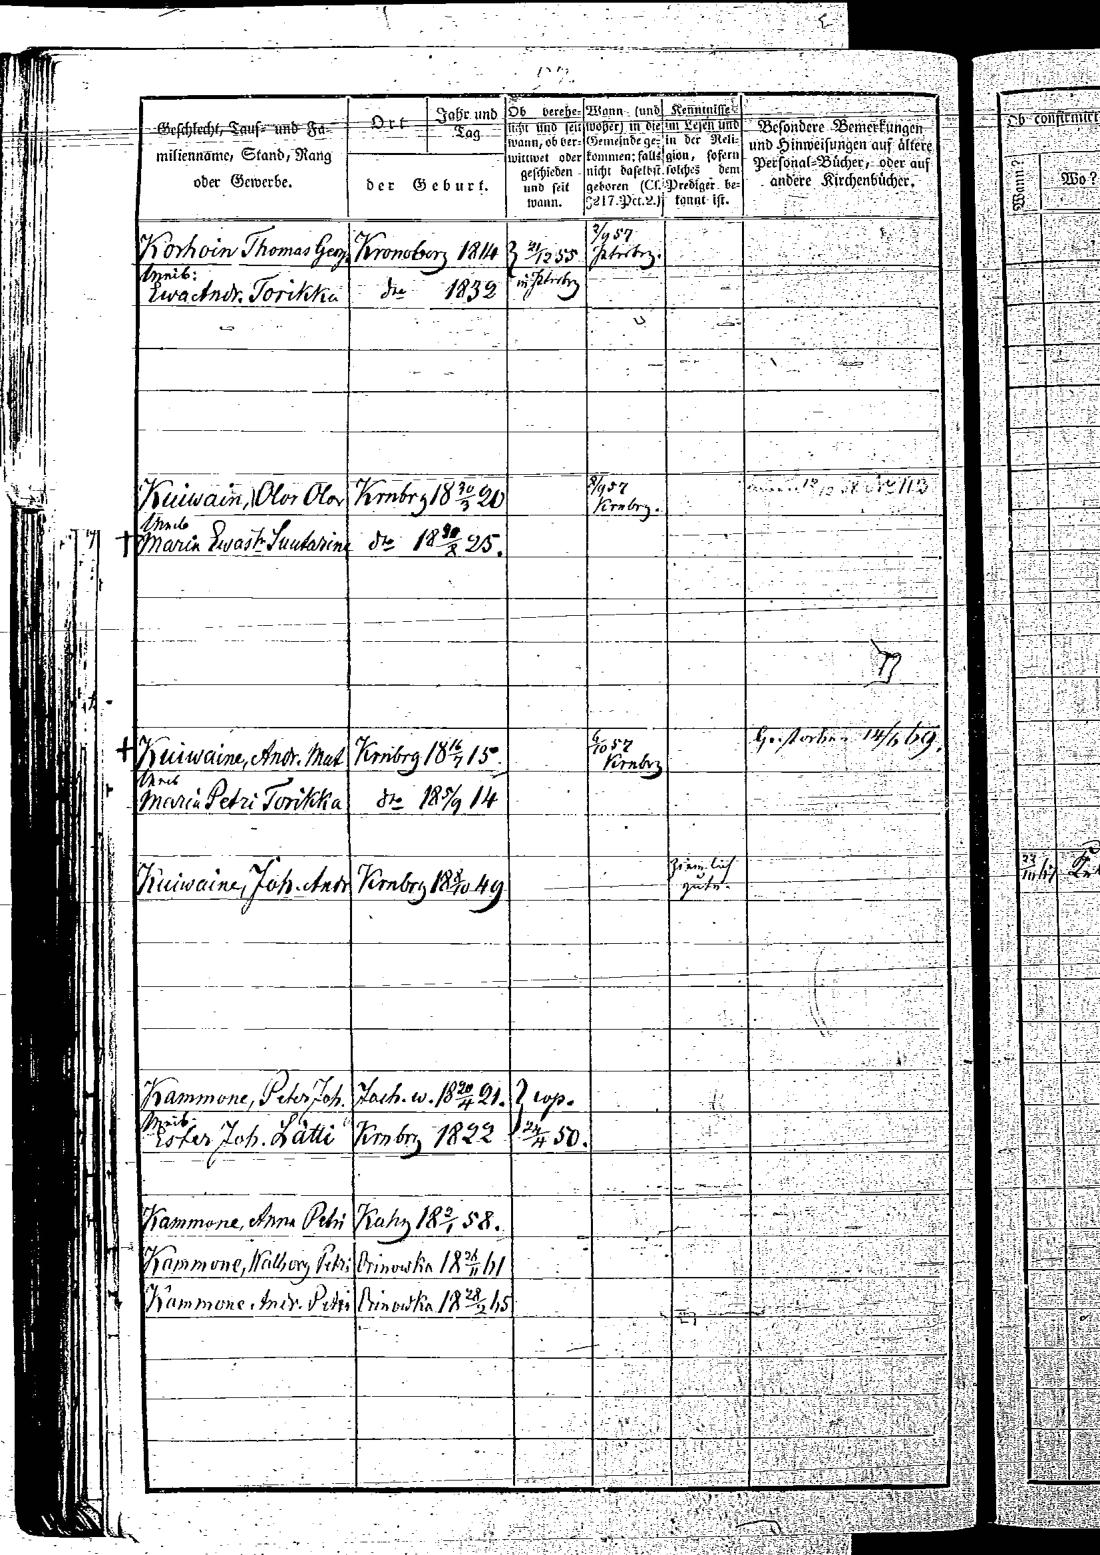 Geschlecht, Tauf- und Fa-
milienname, Stand, Rang
oder Gewerbe.
Ort
Jahr und
Tag
der Geburt.
Ob verehe-
licht und seit
wann, ob ver-
wittwet oder
geschieden
und seit
wann.
Wann (und
woher) in die
Gemeinde ge-
kommen; falls
nicht daselbst
geboren (Cf.
§217. Pct. 2.)
Kenntnisse
im Lesen und
in der Reli-
gion, sofern
solches dem
Prediger be-
kannt ist.
Besondere Bemerkungen
und Hinweisungen auf ältere
Personal-Bücher, oder auf
andere Kirchenbücher.
Ob confirmiert
Wann?
Wo?
Korhoin Thomas Georg Kronoborg 1814 } 21/12 55 2/9 57
Petersbrg.
Weib:
Ewa Andr. Torikka do 1832 in Petersbrg
Kuiwain, Olov Olov Krnbrg 18 30/3 20 8/9 57
Krnbrg. 113
Weib
† Maria Ewastr Suutarine do 18 30/8 25.
† Kuiwaine, Andr. Mat Krnbrg 18 16/7 15. 6/10 57 Gestorben 14/6 69.
Krnbrg
Weib
Maria Petri Torikka do 18 5/9 14
Kuiwaine, Joh. Andr Krnbrg 18 8/10 49 ziemlich
gut.
Kammone, Peter Joh. Joch. w. 18 20/4 21. } cop.
Weib:
Ester Joh. Lätti Krnbrg 1822 24/4 50.
Kammone, Anna Petri Kahy 18 2/1 58.
Kammone, Walborg Petri Orinowka 18 26/11 61
Kammone, Andr. Petri Orinowka 18 28/2 65